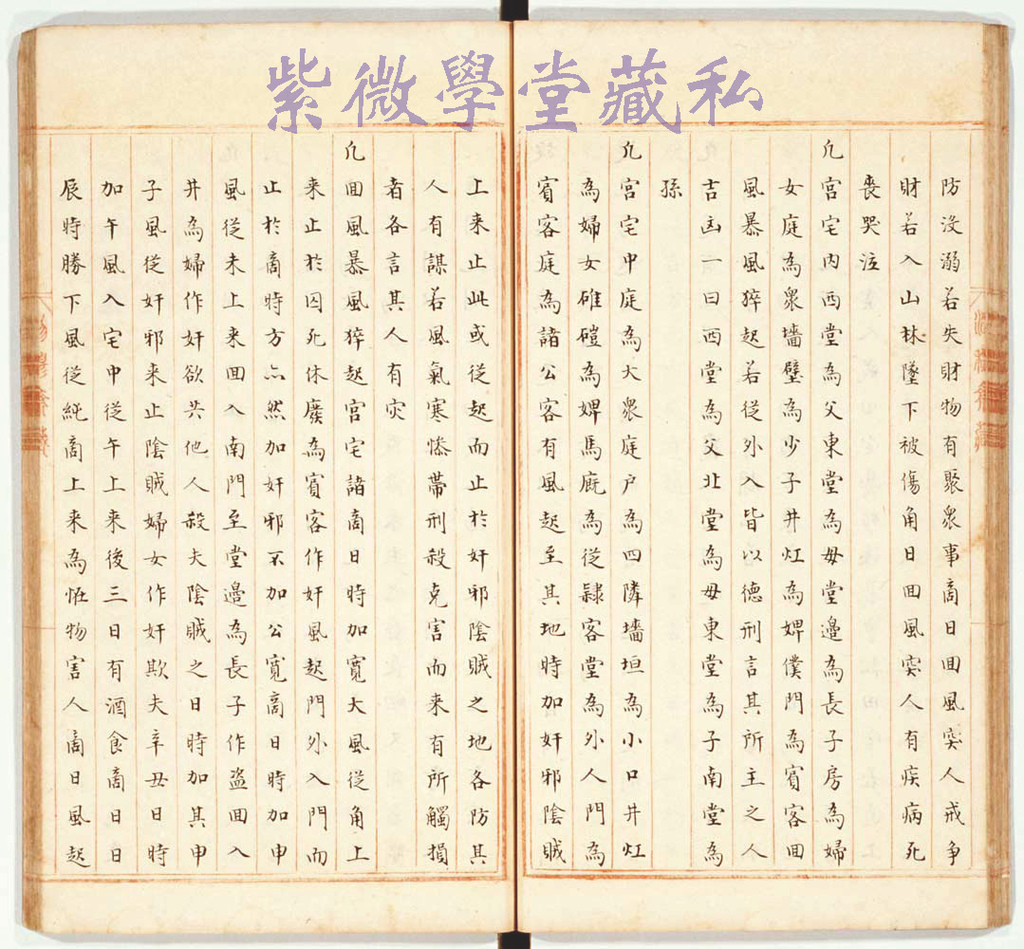 紫微學堂藏私
防没溺若失財物有聚衆事商日囬風突人戒争
財若入山林墜下被傷角日囬風突人有疾病死
喪哭泣
凢宫宅内西堂為父東堂為母堂邉為長子房為婦
女庭為衆墻壁為少子井灶為婢僕門為賓客囬
風暴風猝起若從外入皆以德刑言其所主之人
吉凶一曰西堂為父北堂為母東堂為子南堂為
孫
凢宫宅中庭為大衆庭户為四隣墻垣為小口井灶
為婦女碓磑為婢馬庑為從隸客堂為外人門為
賓客庭為諸公客有風起至其地時加奸邪陰賊
上来止此或從起而止於奸邪陰賊之地各防其
人有謀若風氣寒慘帶刑殺克害而来有所觸損
者各言其人有灾
凢囬風暴風猝起宫宅諸商日時加寛大風從角上
来止於囚死休廢為賓客作奸風起門外入門而
止於商時方亦然加奸邪不加公寛商日時加申
風從未上来囬入南門至堂邉為長子作盗囬入
井為婦作奸欲共他人殺夫陰賊之日時加其申
子風從奸邪来止陰賊婦女作奸欺夫辛丑日時
加午風入宅中從午上来後三日有酒食商日日
辰時勝下風從純商上来為恠物害人商日風起